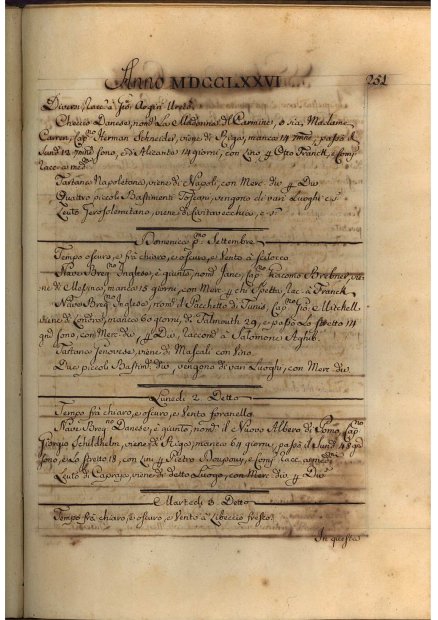 Anno MDCCLXXVI 251
Diversi, Racc. à Gio: Argiri Ureto.
Checcio Danese, nom.º La Madonna di Carmine, o sia, Madame
Carren, Cap.no Herman Schneider, viene di Riga, manca 74 passò il
Sund 12 sono, e d'Alicante 14 giorni, con Lino p Otto Franck, e Comp.
Racc. a med.
Tartana Napoletana, viene di Napoli, con Merc. div. p Div.
Quattro piccoli Bastimenti Toscani, vengono di vari Luoghi c. s.
Leuto Gerosolemitano, viene di Civitavecchia, c. s.
Domenica p.mo Settembre
Tempo oscuro, e frà chiaro, e oscuro, e Vento à scilocco
Nave Inglese, è giunto, nom.º Jane, Cap.no Giacomo Brebner, vie-
ne di Messina, manca 15 giorni, con Merc. p chi spetta, Rac. à Franck
Nave Inglese, nom.º il Pacchetto di Tunis, Cap.no Gio: Mitchell
viene di Londra, manca 60 giorni, di Falmouth 29, e passò Lo stretto 14
sono, con Merc. div. p Div. Raccom.º à Salomone
Tartana Genovese, viene di Mascali con Vino.
Due piccoli Bastim.ti div. vengono di vari Luoghi, con Merc. div.
Lunedì 2 Detto
Tempo frà chiaro, e oscuro, e Vento foranello
Nave Danese, è giunto, nom.º Il Nuovo Albero di Pomo, Cap.no
Giorgio Schildhelm, viene di Riga, manca 64 giorni, passò il Sund 48
sono, e Lo stretto 18, con Lini p Pietro e Comp. Racc. a med.
Leuto di Capraja, viene di detto Luogo, con Merc. div. p Div.
Martedì 3 Detto
Tempo frà chiaro, e oscuro, e Vento à Libeccio fresco.
In questa